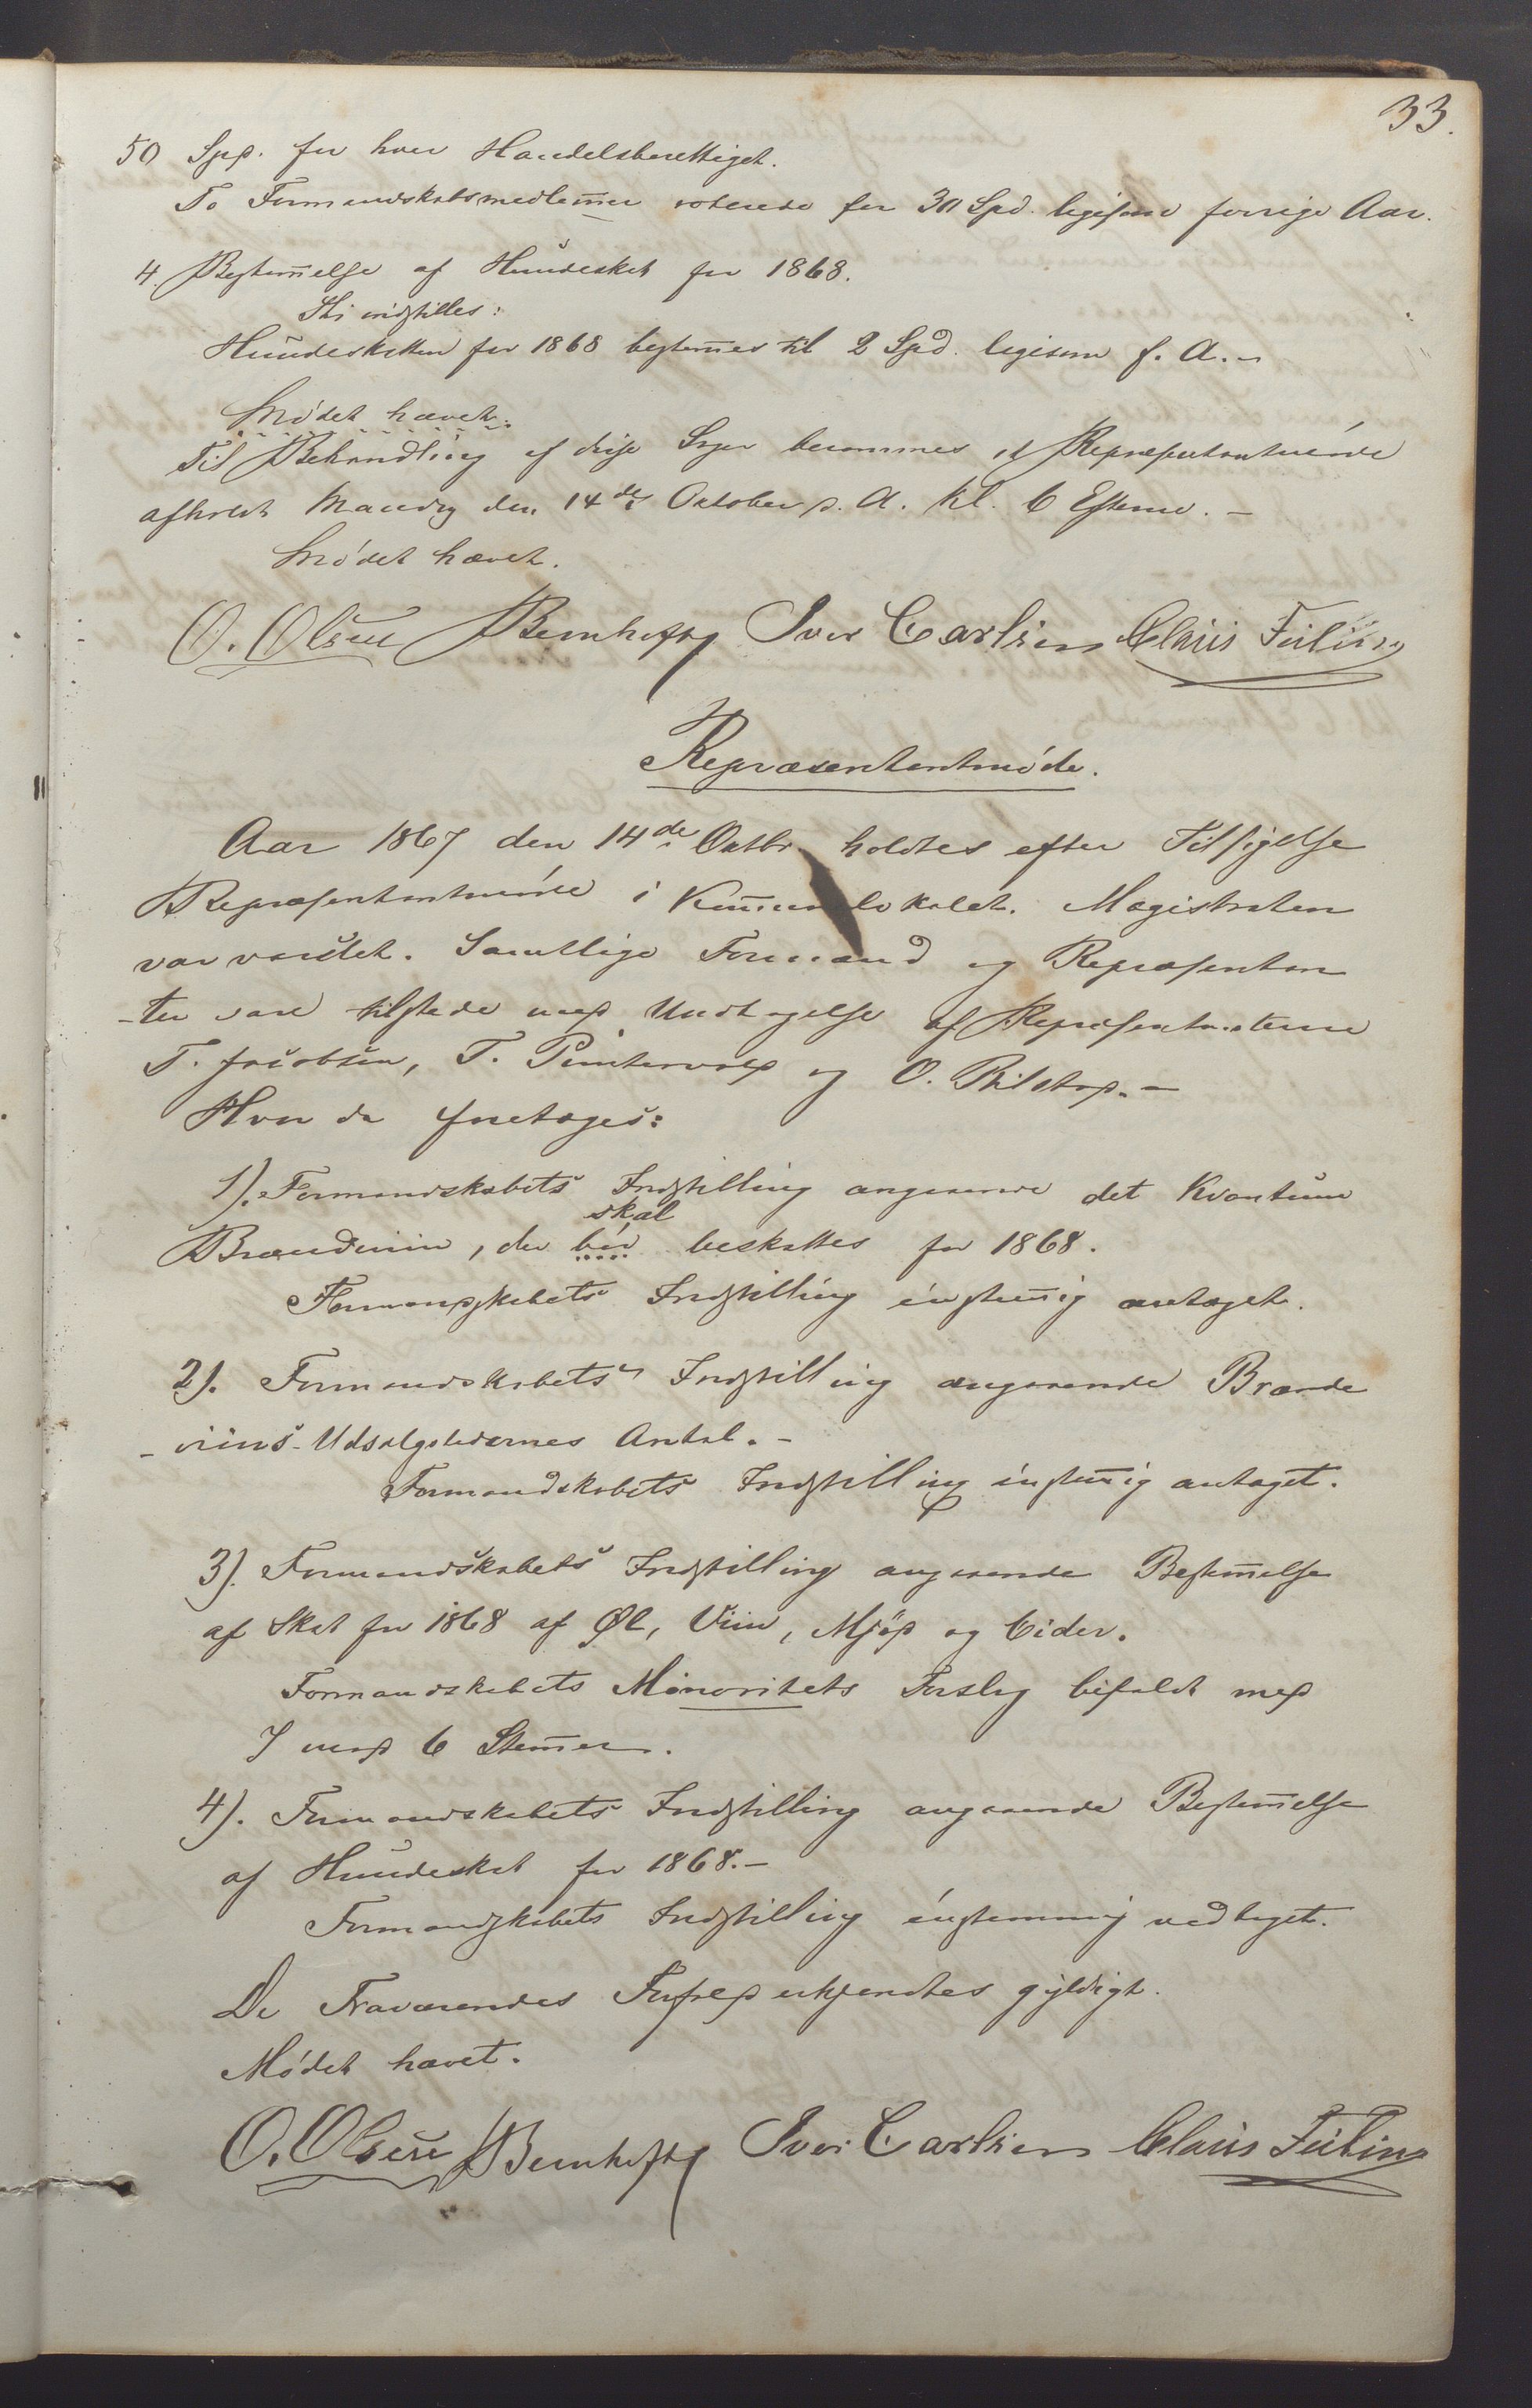 33.
50 Spd. for hver Handelsberettiget.
To Formandskabsmedlem̄er voterede for 30 Spd. ligesom forrige Aar.
4. Bestem̄else af Hundeskat for 1868.
indstilles:
Hundeskatten for 1868 bestem̄es til 2 Spd. ligesom f. A. -
Mödet hævet.
Til Behandling af disse Sager berammes et Repræsentantmöde
afholdt Mandag den 14de Oktober d. A. Kl. 6 Efterm. -
Mödet hævet.
O. Olsen Bernhoft Iver Carlsen Claus Feiling
Repræsentantmöde.
Aar 1867 den 14de Oktbr. holdtes efter Tilsigelse
Repræsentantmöde i Kom̄unelokalet. Magistraten
var varslet. Samtlige Formænd og Repræsentan
-ter vare tilstede med Undtagelse af Repræsentanterne
T. Jacobsen, T. Puntervold og O. Bilstad. -
Hvor da foretoges:
1). Formandskabets Indstilling angaaende det Kvantum
skal
Brændeviin, der bör beskattes for 1868.
Formandskabets Indstilling enstem̄ig antaget.
2). Formandskabets Indstilling angaaende Brænde
-viins-Udsalgstedernes Antal. -
Formandskabets Indstilling enstem̄ig antaget.
3). Formandskabets Indstilling angaaende Bestem̄else
af Skat for 1868 af Øl, Viin, Mjöd og Cider.
Formandskabets Minoritets Forslag bifaldt med
7 mod 6 Stem̄er.
4). Formandskabets Indstilling angaaende Bestem̄else
af Hundeskat for 1868. -
Formandskabets Indstilling enstemmig vedtaget.
De Fraværendes Forfald erkjendtes gyldigt.
Mödet hævet.
O. Olsen Bernhoft Iver Carlsen Claus Feiling